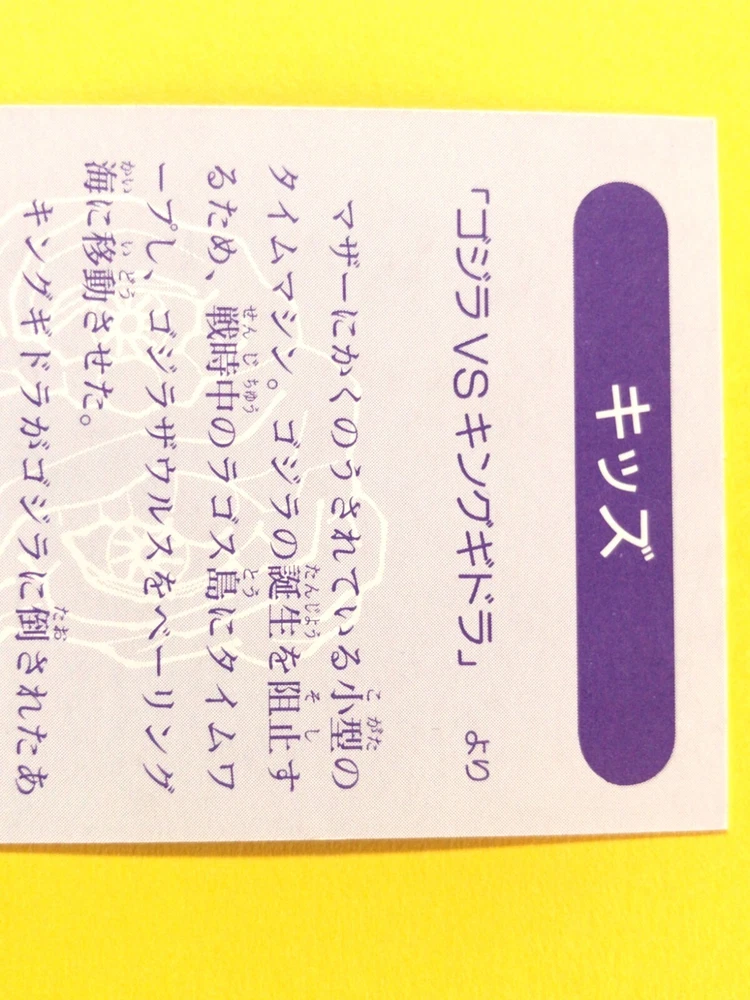 キッズ
「ゴジラVSキングギドラ」 より
マザーにかくのうされている小型の
タイムマシン。ゴジラの誕生を阻止す
るため、戦時中のラゴス島にタイムワ
ープし、ゴジラザウルスをベーリング
海に移動させた。
キングギドラがゴジラに倒されたあ